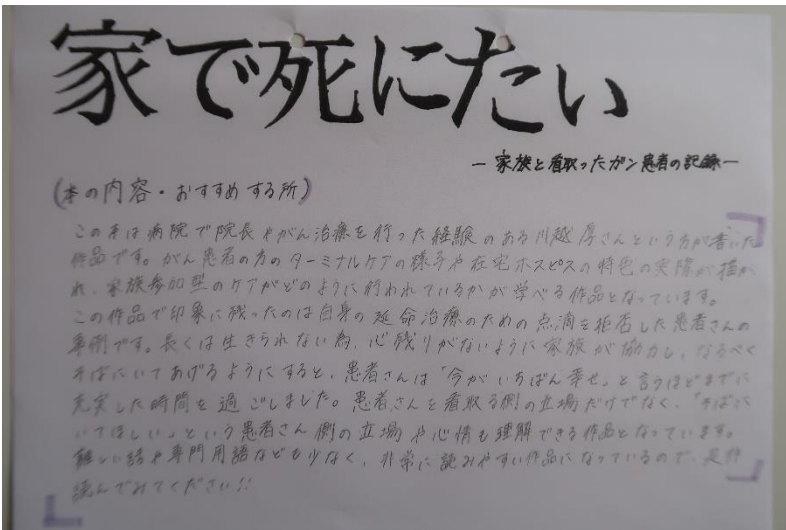 家で死にたい
―家族と看取ったガン患者の記録―
(本の内容・おすすめする所)
この本は病院で院長やがん治療を行った経験のある川越厚さんという方が書いた
作品です。がん患者の方のターミナルケアの様子や在宅ホスピスの特色の実際が描か
れ、家族参加型のケアがどのように行われているかが学べる作品となっています。
この作品で印象に残ったのは自身の延命治療のための点滴を拒否した患者さんの
事例です。長くは生きられない為、心残りがないように家族が協力し、なるべく
そばにいてあげるようにすると、患者さんは「今がいちばん幸せ」と言うほどまでに
充実した時間を過ごしました。患者さんを看取る側の立場だけでなく、「そばに
いてほしい」という患者さん側の立場や心情も理解できる作品となっています。
難しい話や専門用語なども少なく、非常に読みやすい作品になっているので、是非
読んでみてください!!